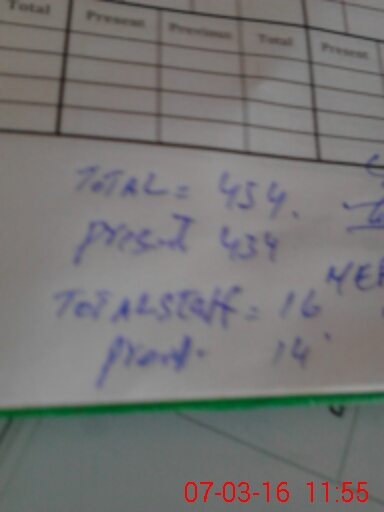 Total Present Previous Total Present
TOTAL = 454.
present 434
TOTAL Staff = 16
14
07-03-16 11:55